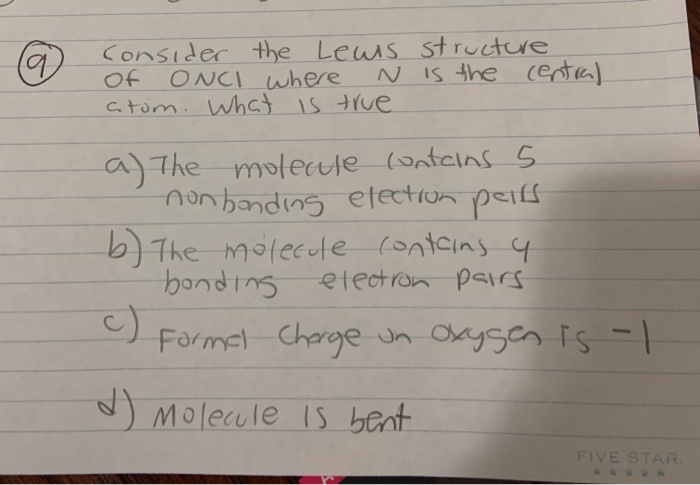 9 Consider the Lewis structure
of ONCl where N is the central
atom. What is true
a) The molecule contains 5
nonbonding electron pairs
b) The molecule contains 4
bonding electron pairs
c) Formal Charge on oxygen is -1
d) Molecule is bent
FIVE STAR.